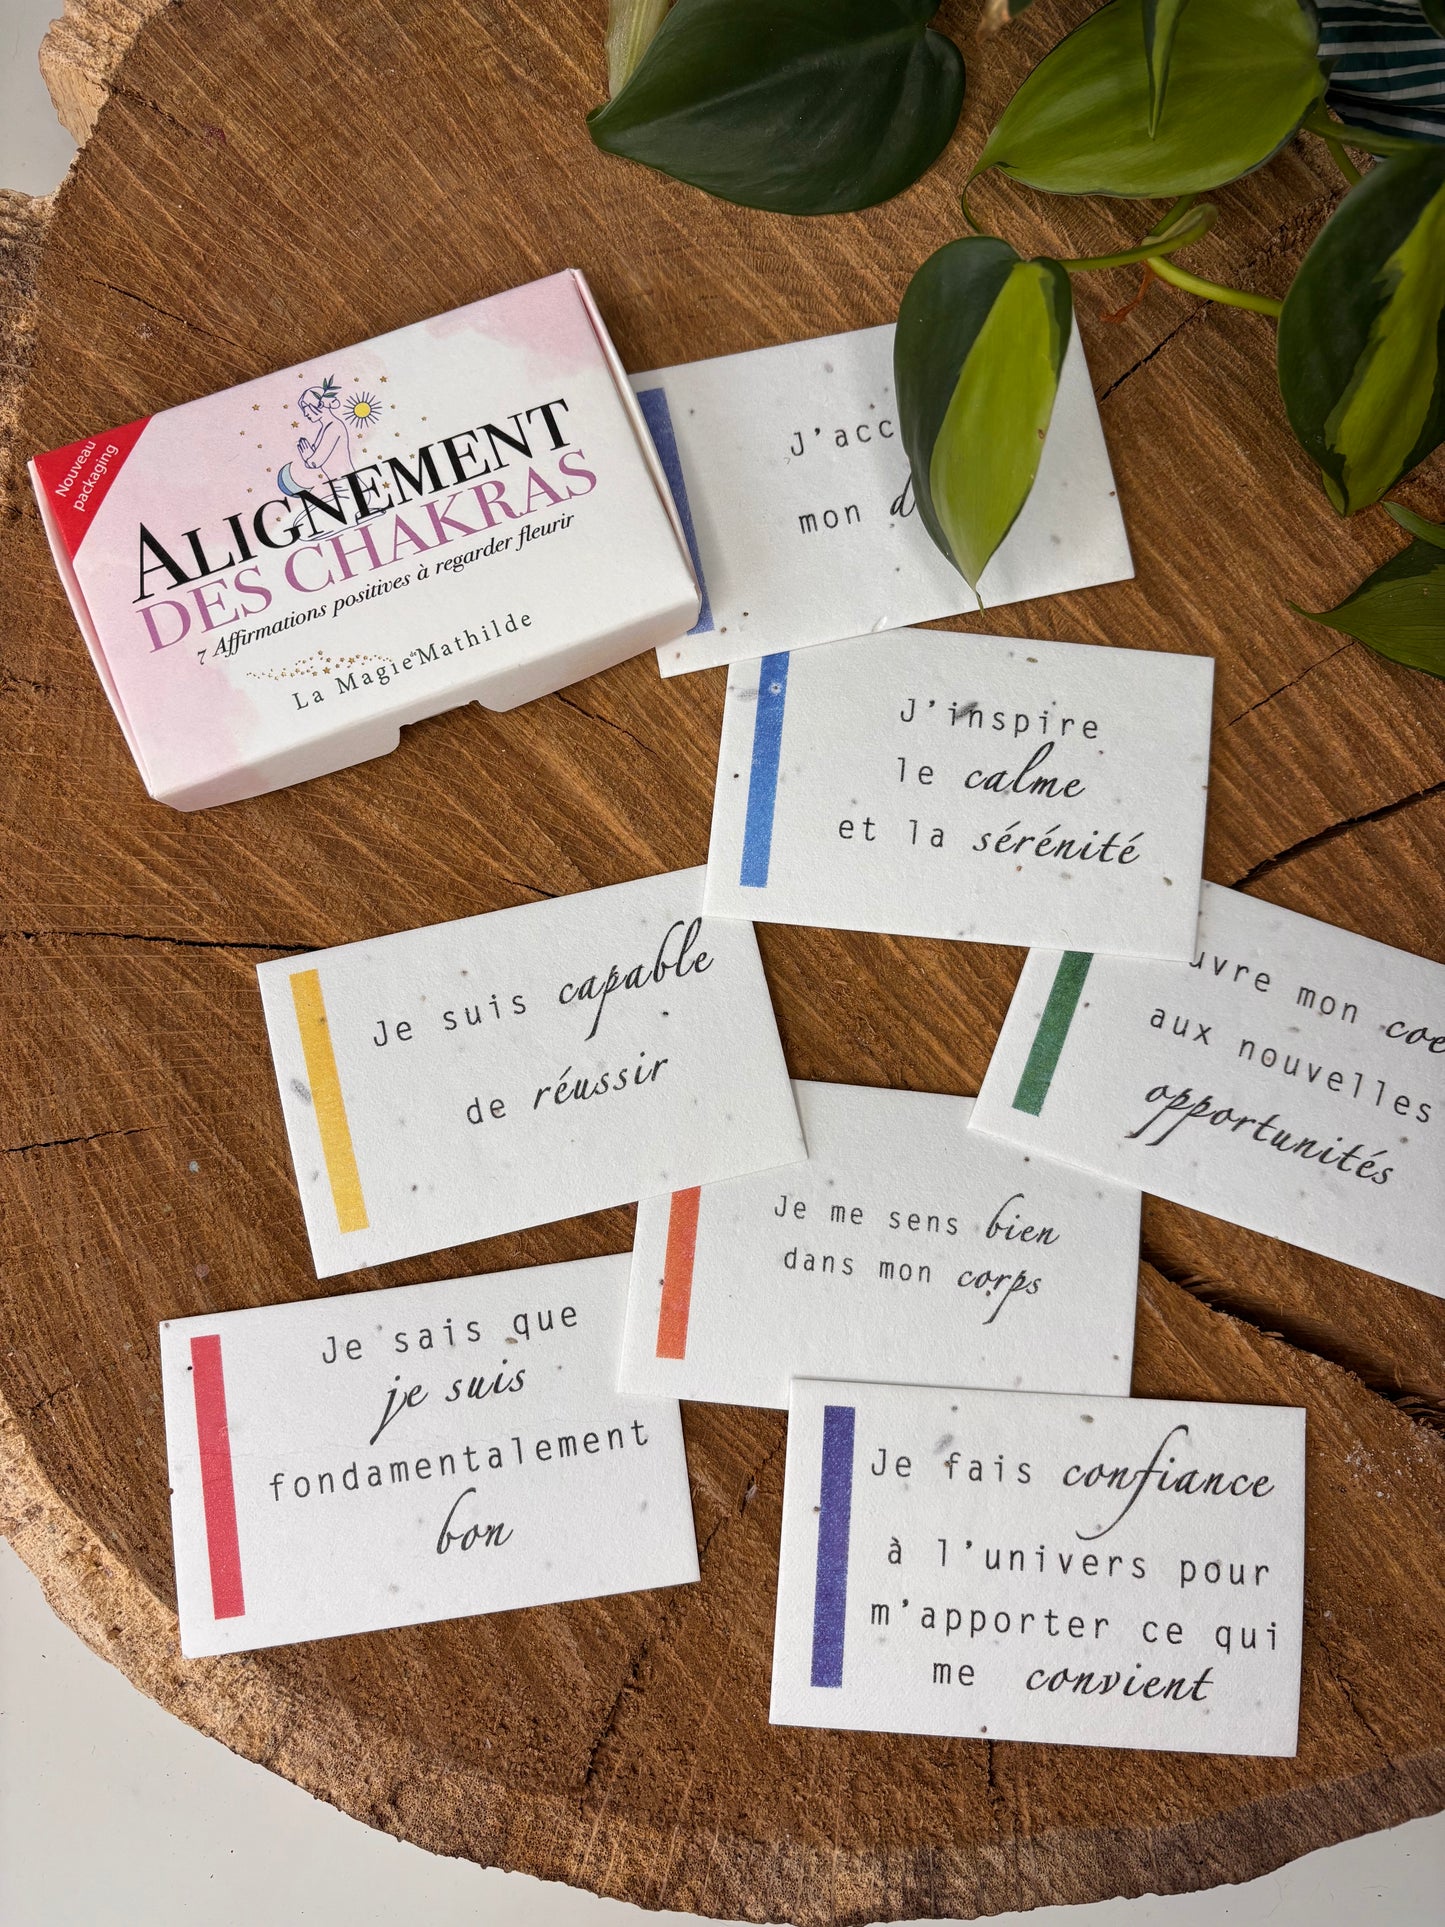 Nouveau
packaging
ALIGNEMENT
DES CHAKRAS
7 Affirmations positives à regarder fleurir
La Magie de Mathilde
mon
J'inspire
le calme
et la sérénité
Je suis capable
de réussir
mon
aux nouvelles
opportunités
Je me sens bien
dans mon corps
Je sais que
je suis
fondamentalement
bon
Je fais confiance
à l'univers pour
m'apporter ce qui
me convient